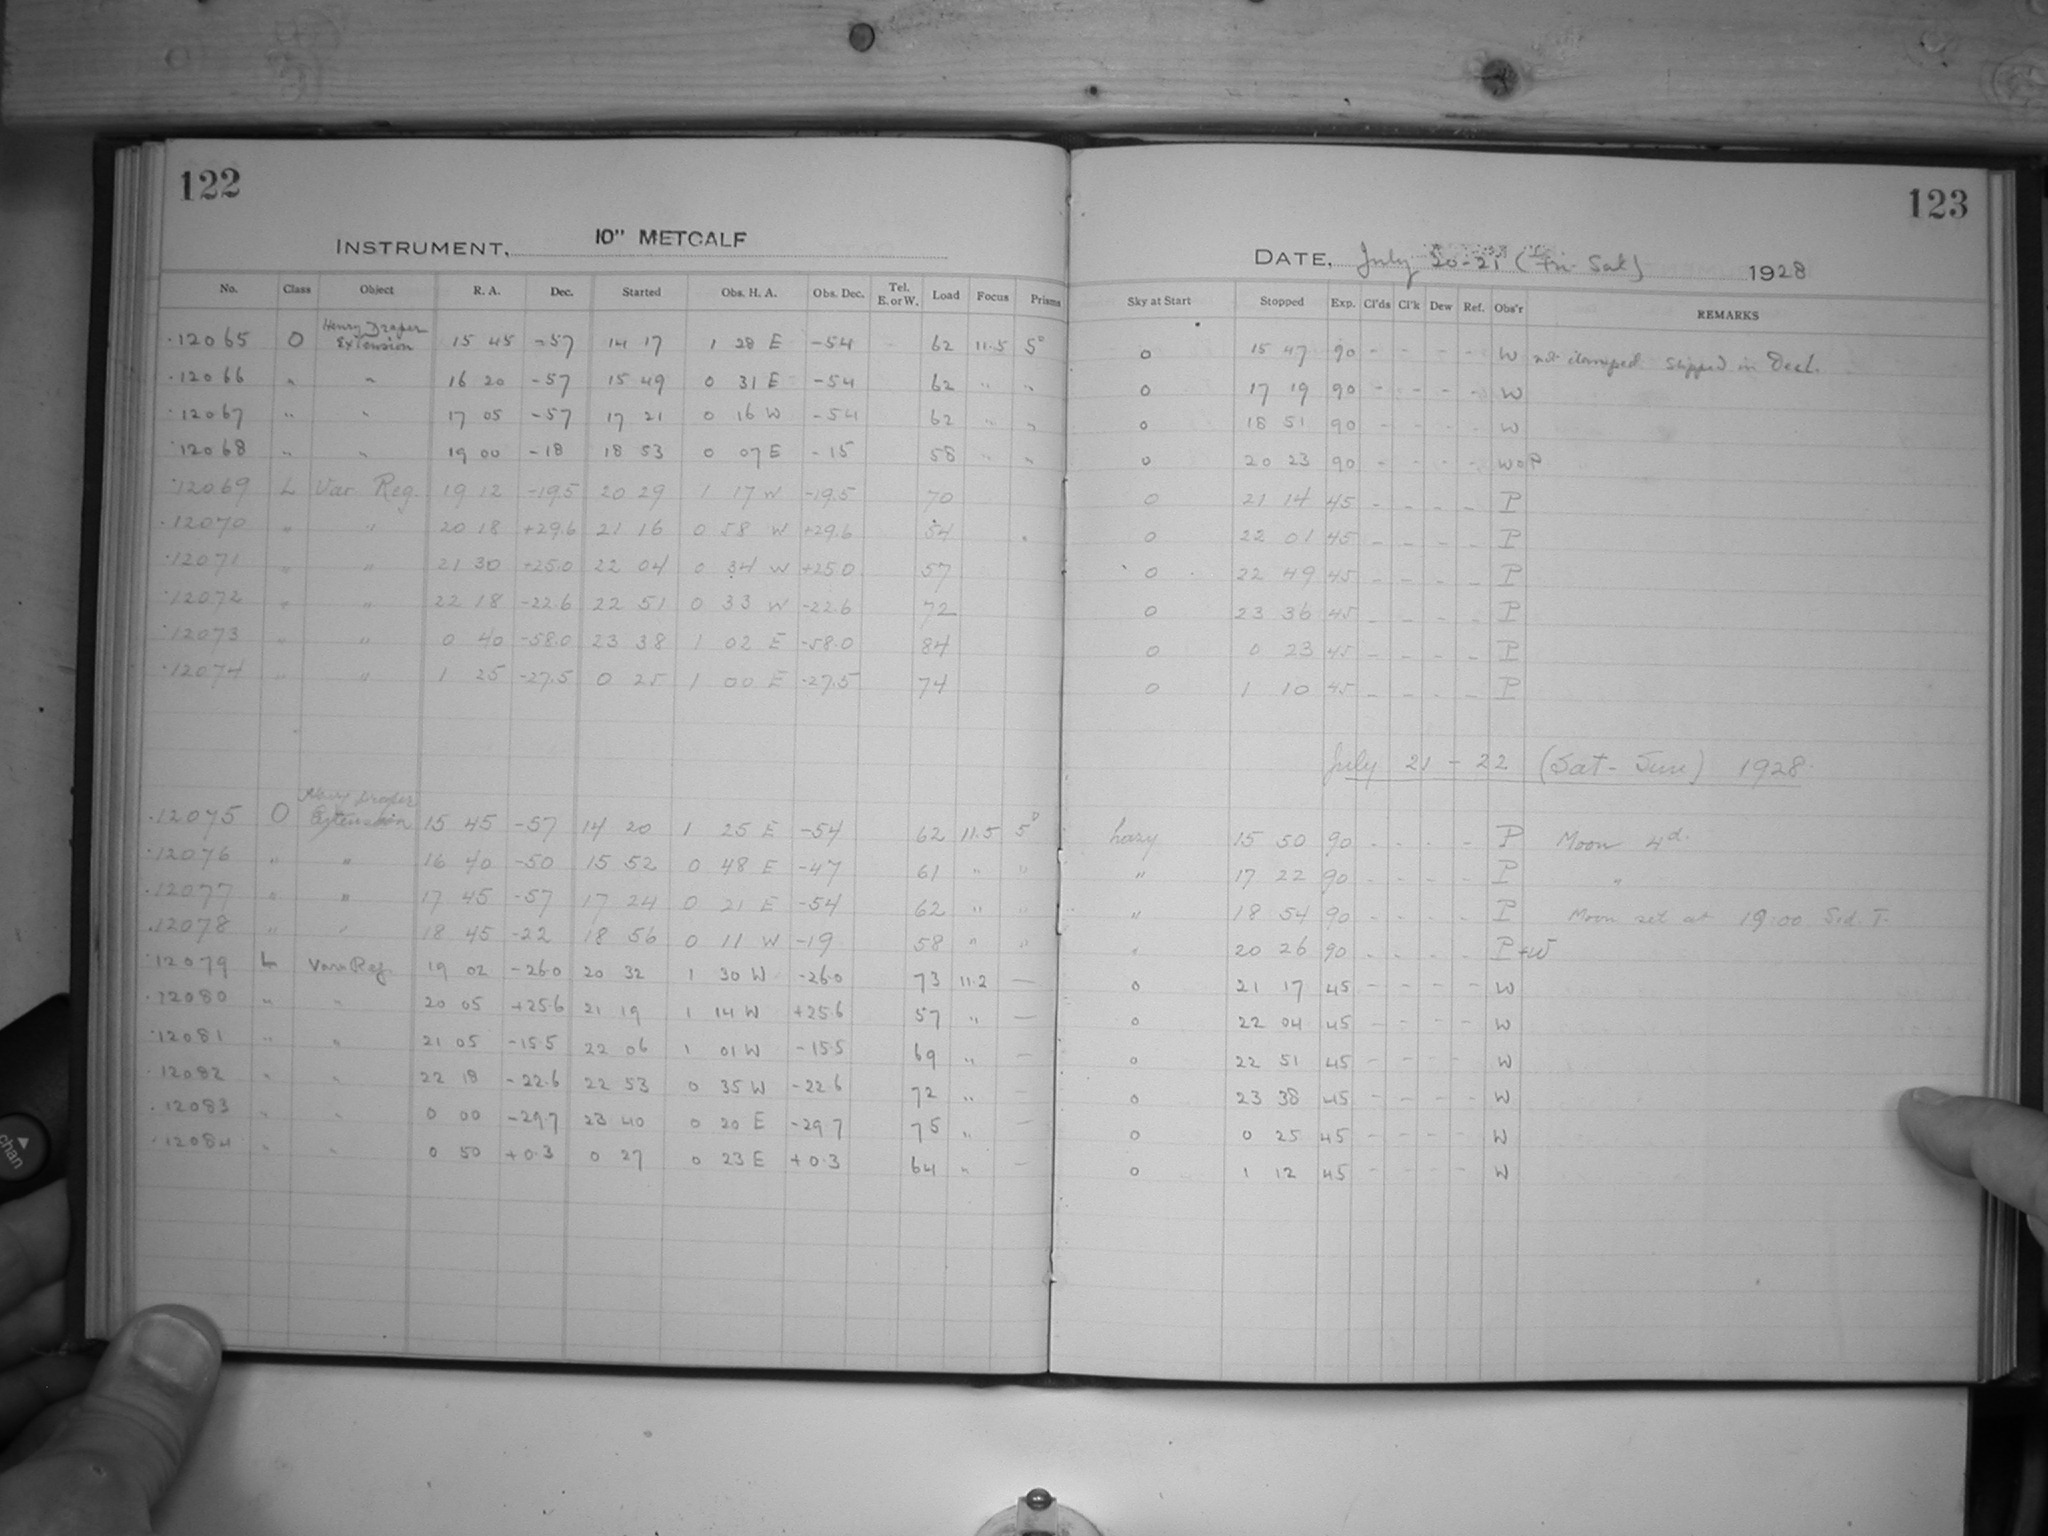 122
INSTRUMENT, 10" METCALF
No. Class Object R. A. Dec. Started Obs. H. A. Obs. Dec. Tel. E. or W. Load Focus Prisms
Henry Draper
12065 O Extension 15 45 -57 14 17 1 28 E -54 62 11.5 5°
12066 " " 16 20 -57 15 49 0 31 E -54 62 " "
12067 " " 17 05 -57 17 21 0 16 W -54 62 " "
12068 " " 19 00 -18 18 53 0 07 E -15 58 " "
12069 L Var Reg. 19 12 -19.5 20 29 1 17 W -19.5 70
12070 " " 20 18 +29.6 21 16 0 58 W +29.6 54
12071 " " 21 30 +25.0 22 04 0 34 W +25.0 57
12072 " " 22 18 -22.6 22 51 0 33 W -22.6 72
12073 " " 0 40 -58.0 23 38 1 02 E -58.0 84
12074 " " 1 25 -27.5 0 25 1 00 E -27.5 74
Henry Draper
12075 O Extension 15 45 -57 14 20 1 25 E -54 62 11.5 5°
12076 " " 16 40 -50 15 52 0 48 E -47 61 " "
12077 " " 17 45 -57 17 24 0 21 E -54 62 " "
12078 " " 18 45 -22 18 56 0 11 W -19 58 " "
12079 L Var Reg. 19 02 -26.0 20 32 1 30 W -26.0 73 11.2 —
12080 " " 20 05 +25.6 21 19 1 14 W +25.6 57 " —
12081 " " 21 05 -15.5 22 06 1 01 W -15.5 69 " —
12082 " " 22 18 -22.6 22 53 0 35 W -22.6 72 " —
12083 " " 0 00 -29.7 23 40 0 20 E -29.7 75 " —
12084 " " 0 50 +0.3 0 27 0 23 E +0.3 64 " —
123
DATE, July 20-21 (Fri-Sat) 1928
Sky at Start Stopped Exp. Cl'ds Cl'k Dew Ref. Obs'r REMARKS
0 15 47 90 - - - - W not clamped slipped in Decl.
0 17 19 90 - - - - W
0 18 51 90 - - - - W
0 20 23 90 - - - - W P
0 21 14 45 - - - - P
0 22 01 45 - - - - P
0 22 49 45 - - - - P
0 23 36 45 - - - - P
0 0 23 45 - - - - P
0 1 10 45 - - - - P
July 21-22 (Sat-Sun) 1928
hazy 15 50 90 - - - - P Moon 4d.
" 17 22 90 - - - - P "
" 18 54 90 - - - - P Moon set at 19:00 Sid. T.
" 20 26 90 - - - - P+W
0 21 17 45 - - - - W
0 22 04 45 - - - - W
0 22 51 45 - - - - W
0 23 38 45 - - - - W
0 0 25 45 - - - - W
0 1 12 45 - - - - W
chan